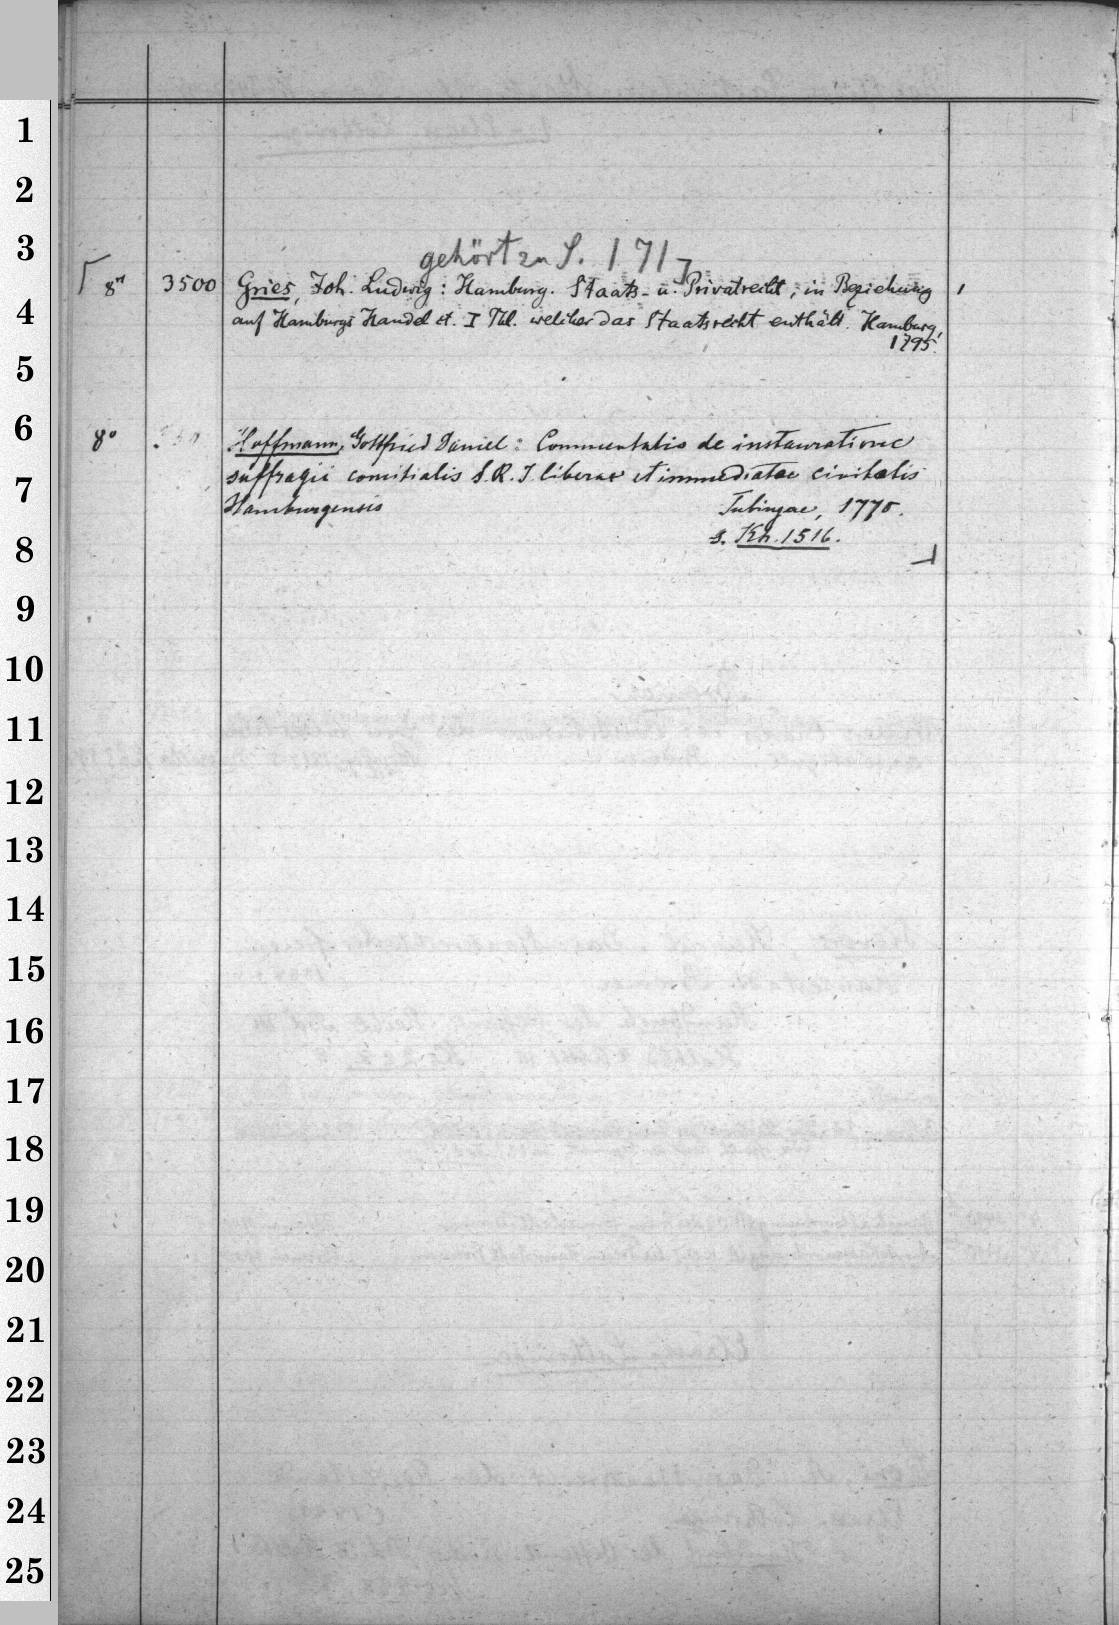 1
2
3
4
5
6
7
8
9
10
11
12
13
14
15
16
17
18
19
20
21
22
23
24
25
gehört zu S. 171
8° 3500 Gries, Joh. Ludwig: Hamburg. Staats- u. Privatrecht, in Beziehung
auf Hamburgs Handel et. I Thl. welcher das Staatsrecht enthält. Hamburg,
1795.
8° Hoffmann, Gottfried Daniel: Commentatio de instauratione
suffragii comitialis S. R. I. liberae et immediatae civitatis
Hamburgensis Tubingae, 1770.
s. Kh. 1516.